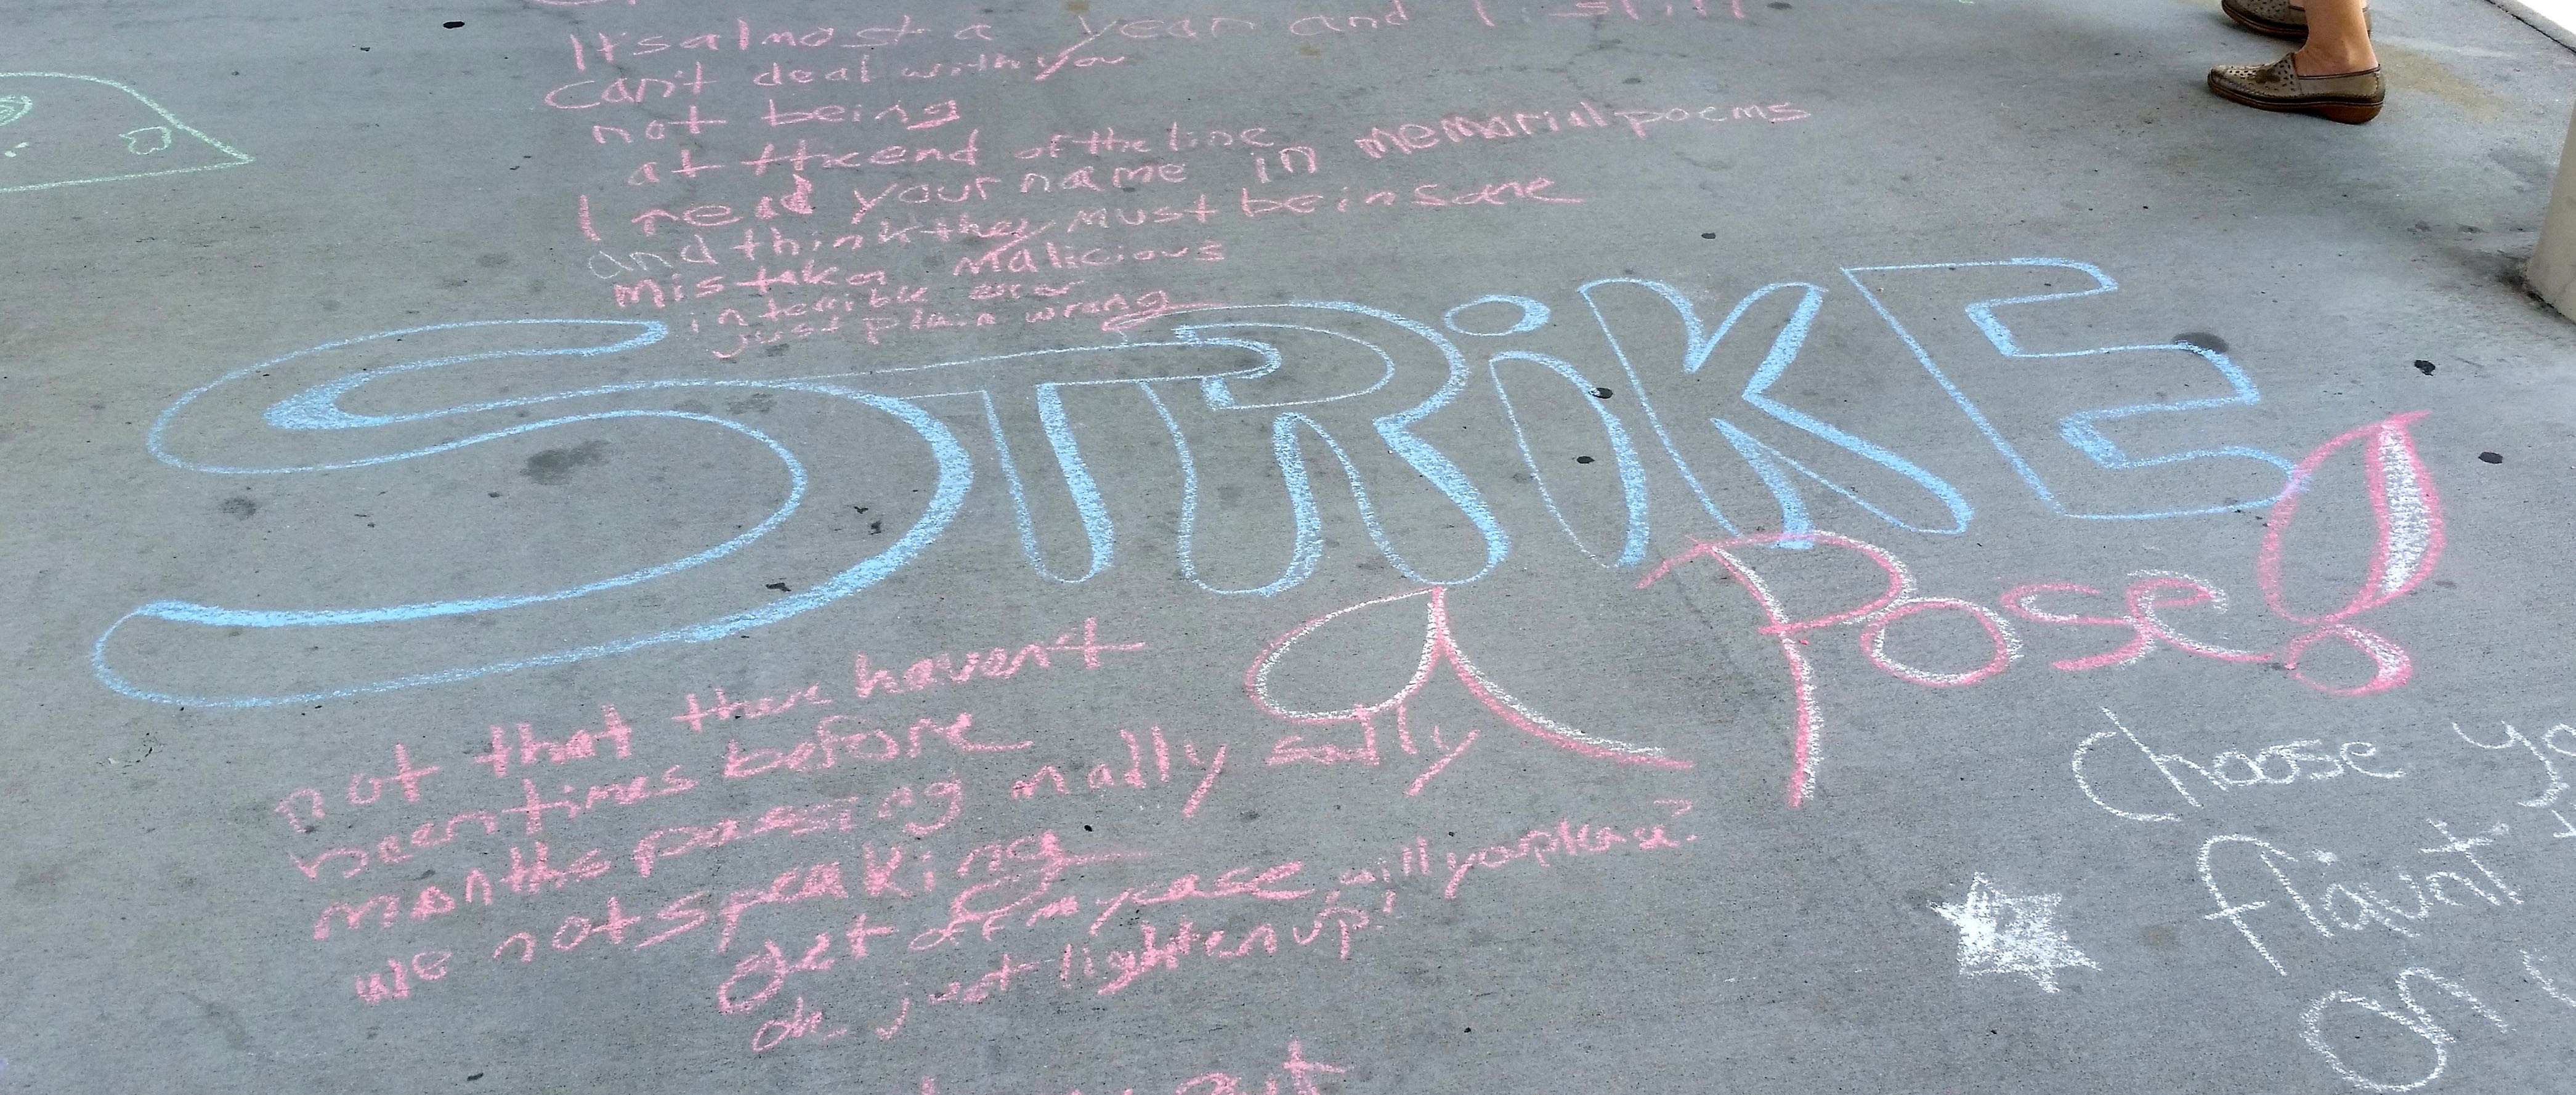 It's almost a year and I still
Can't deal with you
not being
at the end of the line
I read your name in memorial poems
and think they must be insane
mistaken malicious
in terrible error
just plain wrong
STRiKE
a Pose!
not that there havent
been times before
months passing madly sadly
we not speaking
get off my case will you please?
oh, just lighten up!
Choose
flaunt
on